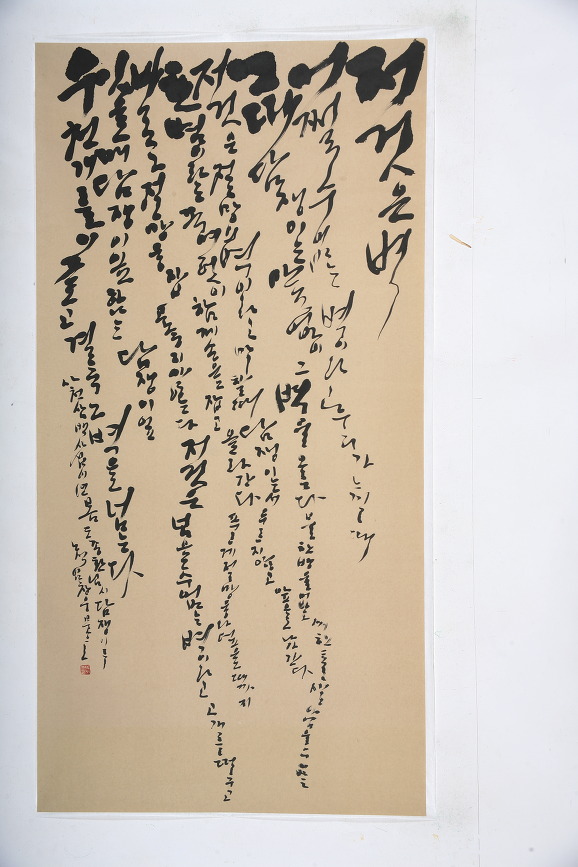 저것은 벽
어쩔 수 없는 벽이라고 우리가 느낄 때
그때 담쟁이는 말없이 그 벽을 오른다 물 한방울 없고 씨앗 한톨 살아남을 수 없는
저것은 절망의 벽이라고 말할때 담쟁이는 서두르지 않고 앞으로 나간다
한뼘이라도 꼭 여럿이 함께 손을 잡고 올라간다 푸르게 절망을 다 덮을 때까지
바로 그 절망을 잡고 놓지 않는다 저것은 넘을 수 없는 벽이라고 고개를 떨구고
있을때 담쟁이 잎 하나는 담쟁이 잎
수천개를 이끌고 결국 그 벽을 넘는다
봄 도종환님 시 담쟁이